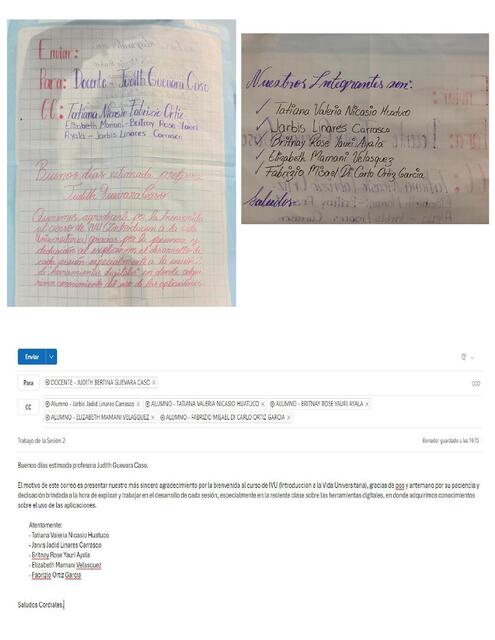 Enviar:
Para: Docente - Judith Guevara Caso
CC: Tatiana Nicasio Fabrizio Ortiz
Elizabeth Mamani - Britnay Rose Yauri
Ayala - Jarbis Linares Carrasco
Buenos días estimada profesora
Judith Guevara Caso
Queremos agradecer por la bienvenida
al curso de IVU (Introducción a la Vida
Universitaria) gracias por la paciencia y
dedicación al explicar en el desarrollo de
cada sesión especialmente a la sesión 2
de "herramientas digitales" en donde adqui-
rimos conocimiento del uso de las aplicaciones
Nuestros Integrantes son:
✓ Tatiana Valeria Nicasio Huatuco
✓ Jarbis Linares Carrasco
✓ Britnay Rose Yauri Ayala
✓ Elizabeth Mamani Velasquez
✓ Fabrizio Misael Di Carlo Ortiz Garcia
Saludos
Enviar
Para DOCENTE - JUDITH BERTINA GUEVARA CASO ×
CCO
CC Alumno - Jarbis Jadid Linares Carrasco × ALUMNO - TATIANA VALERIA NICASIO HUATUCO × ALUMNO - BRITNAY ROSE YAURI AYALA ×
ALUMNO - ELIZABETH MAMANI VELASQUEZ × ALUMNO - FABRIZIO MISAEL DI CARLO ORTIZ GARCIA ×
Trabajo de la Sesión 2
Borrador guardado a las 14:15
Buenos días estimada profesora Judith Guevara Caso.
El motivo de este correo es presentar nuestro más sincero agradecimiento por la bienvenida al curso de IVU (Introducción a la Vida Universitaria), gracias de pos y antemano por su paciencia y
dedicación brindada a la hora de explicar y trabajar en el desarrollo de cada sesión, especialmente en la reciente clase sobre las herramientas digitales, en donde adquirimos conocimientos
sobre el uso de las aplicaciones.
Atentamente:
- Tatiana Valeria Nicasio Huatuco
- Jarvis Jadid Linares Carrasco
- Britnay Rose Yauri Ayala
- Elizabeth Mamani Velasquez
- Fabrizio Ortiz Garcia
Saludos Cordiales.